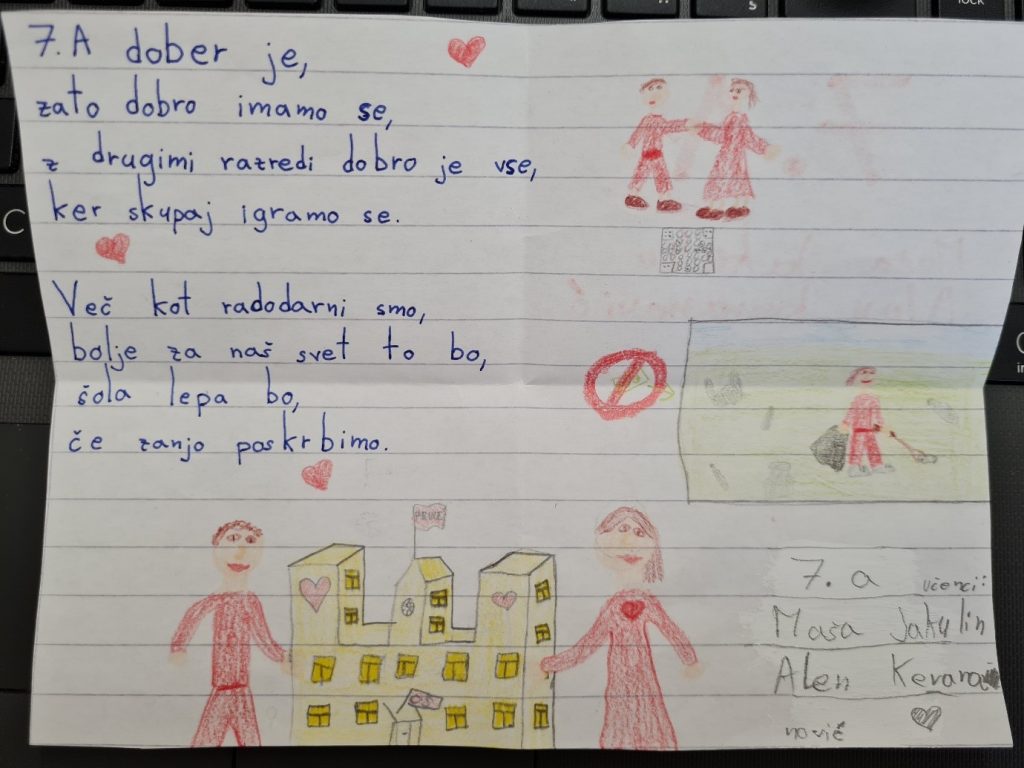 7. A dober je,
zato dobro imamo se,
z drugimi razredi dobro je vse,
ker skupaj igramo se.
Več kot radodarni smo,
bolje za naš svet to bo,
šola lepa bo,
če zanjo poskrbimo.
7. a učenci:
Maša
Alen
nović